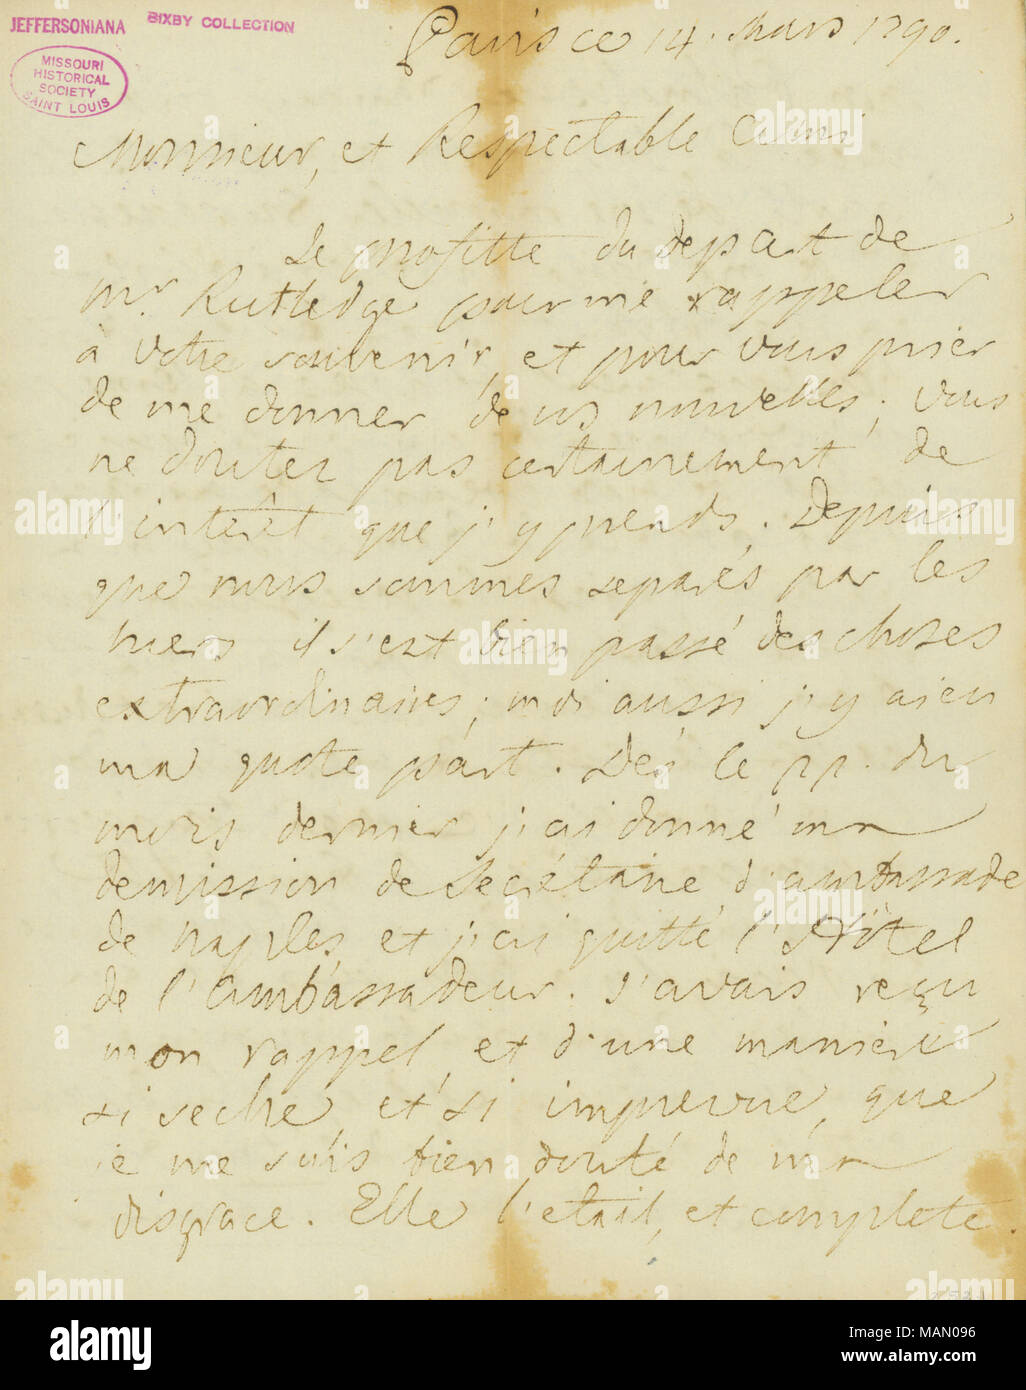 JEFFERSONIANA
BIXBY COLLECTION
MISSOURI
HISTORICAL
SOCIETY
SAINT LOUIS
Paris ce 14. Mars 1790.
Monsieur, et Respectable Ami
Je profitte du depart de
Mr. Rutledge pour me rappeler
à votre souvenir, et pour vous prier
de me donner de vos nouvelles; vous
ne doutez pas certainement de
l'intérêt que j'y prends. Depuis
que nous sommes separés par les
mers il s'est bien passé des choses
extraordinaires; moi aussi j'y ai eu
ma quote part. Dés le pp. du
mois dernier j'ai donné ma
demission de Secrétaire d'ambassade
de Naples, et j'ai quitté l'Hôtel
de l'Ambassadeur. J'avais reçu
mon rappel, et d'une maniere
si seche, et si imprevue, que
je me suis bien douté de ma
disgrace. Elle l'etait, et complete.
alamy
Image ID: MAN096
www.alamy.com